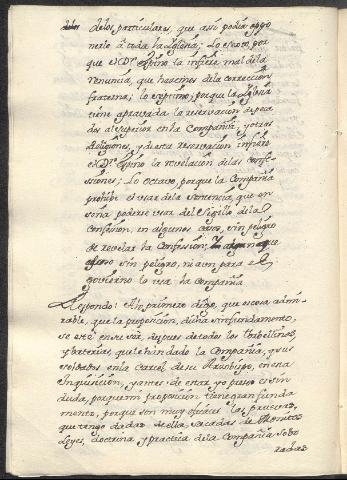 de los particulares, que assi podia oppo
nerlo à toda la Iglesia; Lo sexto, por
que el Dr. Espino la infiere mal de la
renuncia, que hacemos dela correccion
fraterna; Lo septimo, porque la Iglesia
tiene aprovada la reservacion de peca
dos al superior en la Compañia, y otras
Religiones, y de esta reservacion infiere
el Dr. Espino la revelacion de las Confe
ssiones; Lo Octavo, porque la Compañia
prohibe el usar de la sentencia, que en
seña poderse usar del Sigillo de la
Confession, en algunos casos, sin peligro
de revelar la Confession; 
sin peligro, ni aun para el
govierno lo usa la Compañia
Respondo: A lo primero digo, que es cosa admi
rable, que la proposicion, dicha sin fundamento,
se esté en su ser, despues de todos los torbellinos,
y baterias, que le hin dado la Compañia, y sus
soldados en la Carcel de su Arzobispo, en esta
Inquisicion, y antes de estar yo preso es sin
duda, porque mi proposicion tiene gran funda
mento, porque son muy eficaces las pruevas,
que tengo dadas de ella, sacadas de
Leyes, doctrina, y practica de la Compañia Sobre